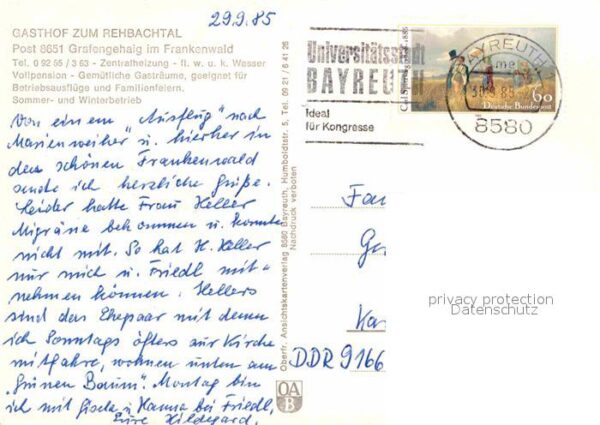 29.9.85
GASTHOF ZUM REHBACHTAL
Post 8651 Grafengehaig im Frankenwald
Tel. 0 92 55 / 3 63 - Zentralheizung - fl. w. u. k. Wasser
Vollpension - Gemütliche Gasträume, geeignet für
Betriebsausflüge und Familienfeiern.
Sommer- und Winterbetrieb
Von einem "Ausflug" nach
Marienweiher u. hierher in
den schönen Frankenwald
sende ich herzliche Grüße.
Leider hatte Frau Heller
Migräne bekommen u. konnte
nicht mit. So hat H. Heller
nur mich u. Friedl mit-
nehmen können. Hellers
sind das Ehepaar mit denen
ich Sonntags öfters zur Kirche
mitfahre, wohnen unten am
"Grünen Baum". Montag bin
ich mit Gisela u. Hanna bei Friedl.
Eure Hildegard.
Oberfr. Ansichtskartenverlag 8580 Bayreuth, Humboldtstr. 5, Tel. 09 21 / 6 41 26
Nachdruck verboten
OA
B
Universitätsstadt
BAYREUTH
Ideal
für Kongresse
BAYREUTH
30.9.85
8580
60
Deutsche Bundespost
Fa
Ga
Ka
DDR 9166
privacy protection
Datenschutz